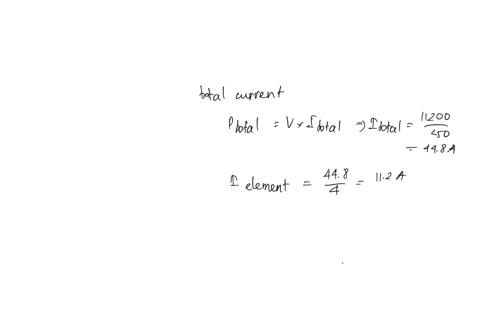 total current
Ptotal = V × Itotal ⇒ Itotal = 11200 / 250
= 44.8A
I element = 44.8 / 4 = 11.2 A